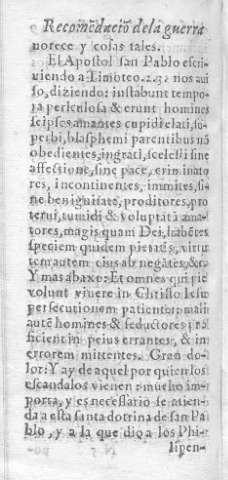 Recomẽdaciõ dela guerra
uorece y cosas tales.
El Apostol san Pablo escri
uiendo a Timoteo. 2. 3. nos aui
so, diziendo: instabunt tempo
ra periculosa & erunt homines
se ipsos amantes cupidi elati, su
perbi, blasphemi parentibus nõ
obedientes, ingrati, scelesti sine
affectione, sine pace, criminato
res, incontinentes, immites, si
ne benignitate, proditores, pro
terui, tumidi & voluptatũ ama
tores, magis quam Dei, habẽtes
speciem quidem pietatis, virtu
tem autem eius abnegãtes, &c.
Y mas abaxo: Et omnes qui pie
volunt viuere in Christo Iesu
persecutionem patientur: mali
autẽ homines & seductores pro
ficient in peius errantes, & in
errorem mittentes. Gran do-
lor: Y ay de aquel por quien los
escandalos vienen: mucho im-
porta, y es necessario se atien-
da a esta santa dotrina de san Pa
blo, y a la que dio a los Phi-
lipen-